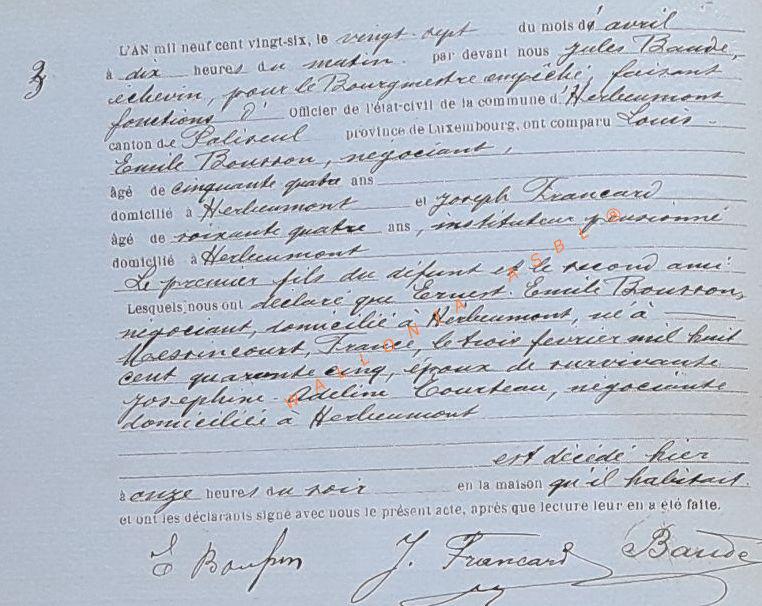 3
L'AN mil neuf cent vingt-six, le vingt-sept du mois d'avril
à dix heures du matin. par devant nous Jules Baude,
échevin, pour le Bourgmestre empêché, faisant
fonctions d' Officier de l'état-civil de la commune d'Herbeumont
canton de Paliseul province de Luxembourg, ont comparu Louis-
Emile Bousson, négociant,
âgé de cinquante quatre ans
domicilié à Herbeumont et Joseph Francard
âgé de soixante quatre ans, instituteur pensionné
domicilié à Herbeumont
Le premier fils du défunt et le second ami
Lesquels nous ont déclaré que Ernest-Emile Bousson,
négociant, domicilié à Herbeumont, né à
Messincourt, France, le trois fevrier mil huit
cent quarante cinq, époux de survivante
Josephine-Adeline Courteau, négociante
domiciliée à Herbeumont
est décédé hier
à onze heures du soir en la maison qu'il habitait.
et ont les déclarants signé avec nous le présent acte, après que lecture leur en a été faite.
E Bousson J. Francard Baude
WALLONIA ASBL ®